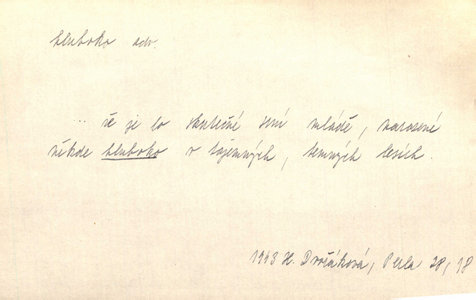 hluboko adv.
.. že je to skutečné srní mládě, narozené
někde hluboko v tajemných, temných lesích.
1943 H. Dvořáková, Perla 28, 18